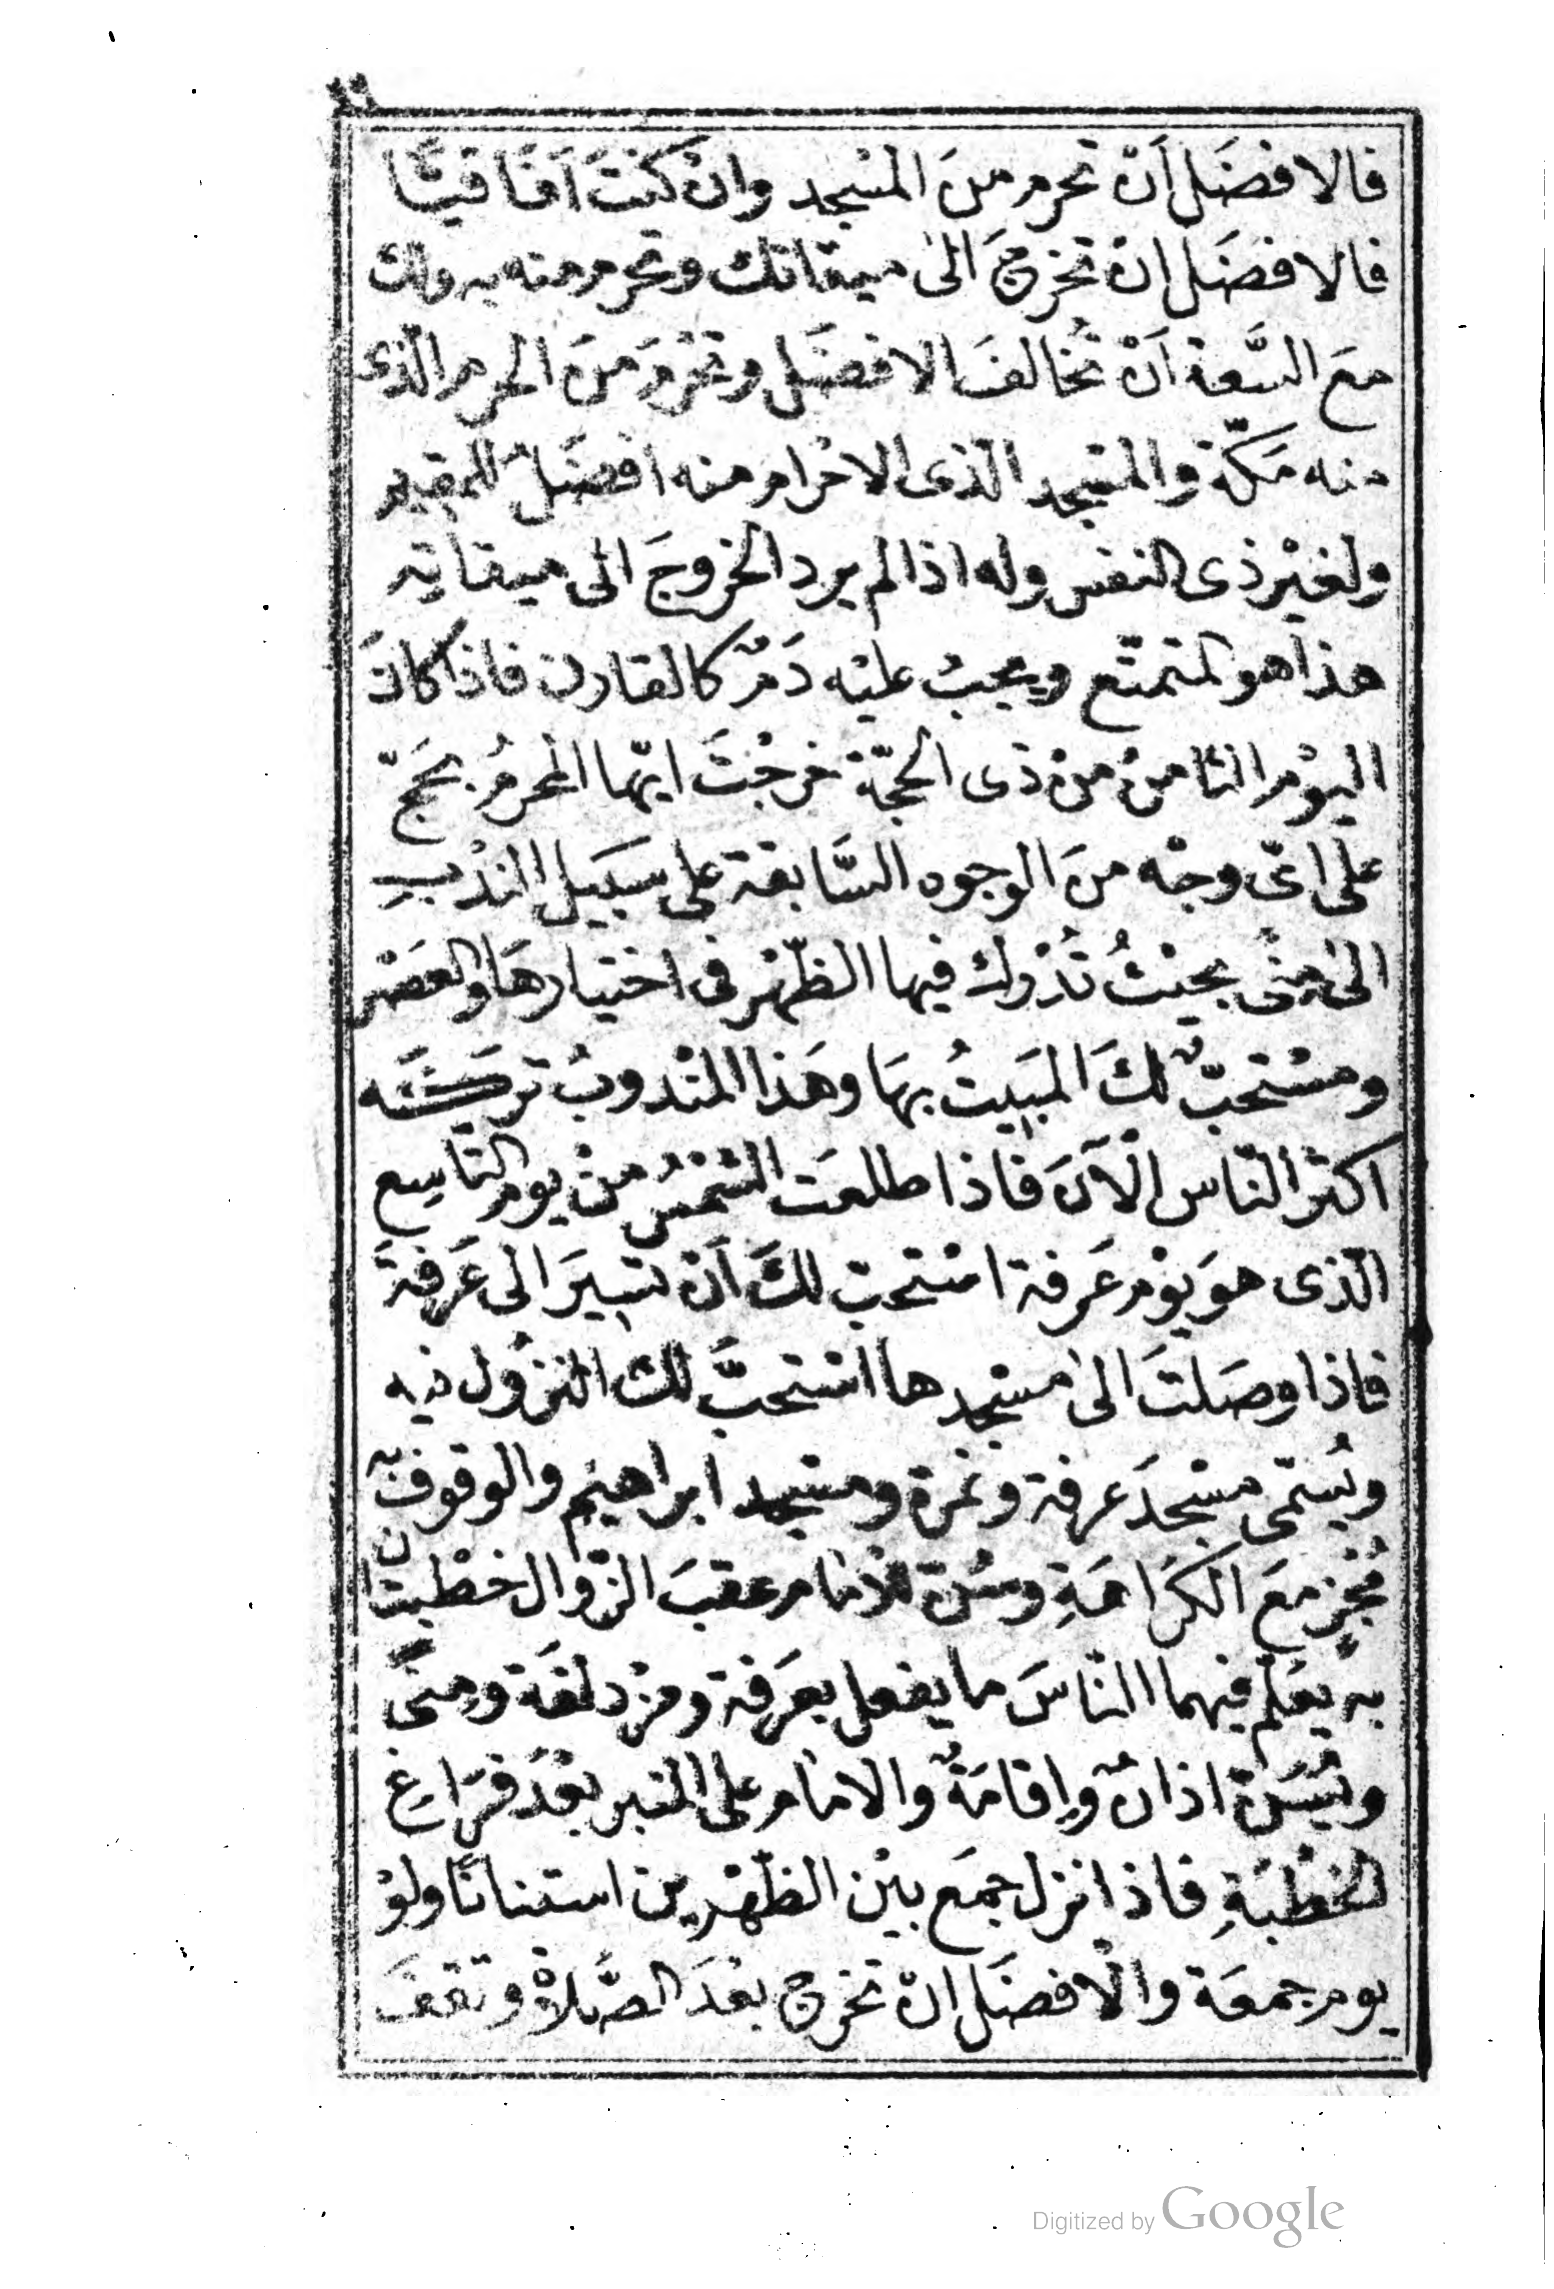 فالافضَل اَنْ تحرم منَ المسْجد وانْ كنتَ آفَاقيًّا
فالافضَل ان تخرجَ الىٰ ميقاتك وتحرم منه به ولك
معَ السَّعة اَنْ تُخالفَ الافضَل وتحْرمَ منَ الحرم الذى
منه مَكّة والمسْجد الّذى الاحْرام منه افْضَل للمقيم
ولغيْر ذى النفس وله اذا لم يرد الخروجَ الى ميقاتِه
هذا هو المتمتّع ويجبُ عليْه دَمٌ كالقارن فاذا كانَ
اليوْم الثامنُ منْ ذى الحجّة خرجْتَ ايّها المحرمُ بحَجّ
على اىّ وجْه منَ الوجوه السَّابقة على سَبَيل النذْبِ
الىٰ مِنًى بحيْثُ تُدْرك فيها الظّهْر فى اختيارهَا والعصْر
ومسْتحبّ لكَ المبَيتُ بهَا وهَذا المنْدوبُ تركَته
اكثرُ النّاس الْآنَ فاذا طلعَت الشمْسُ منْ يوم التّاسِع
الّذى هوَ يوْم عَرفة اسْتحبّ لكَ اَنْ تسِيرَ الى عَرفةَ
فاذا وصَلتَ الىٰ مسْجدها اسْتحبَّ لك النزُول فيه
ويُسمّى مسْجدَ عرفة ونمرة ومسْجد ابراهيْم والوقوفُ
به مُجْزٍ معَ الكرَاهَةِ وسُنّ للامام عقبَ الزّوال خطْبتان
به يعَلّم فيهما النّاسَ ما يفعل بعَرفة ومزْدلفَة ومِنًى
ويُسَنّ اذانٌ وإقامَةٌ والامام على المنبر بعْدَ فرَاغِ
الخطْبَةِ فاذا نزل جمَع بيْن الظّهْرين استنانًا ولوْ
يوم جمعَة والْافضَل انْ تخرج بعْدَ الصَّلاةْ وتقفَ
Digitized by Google